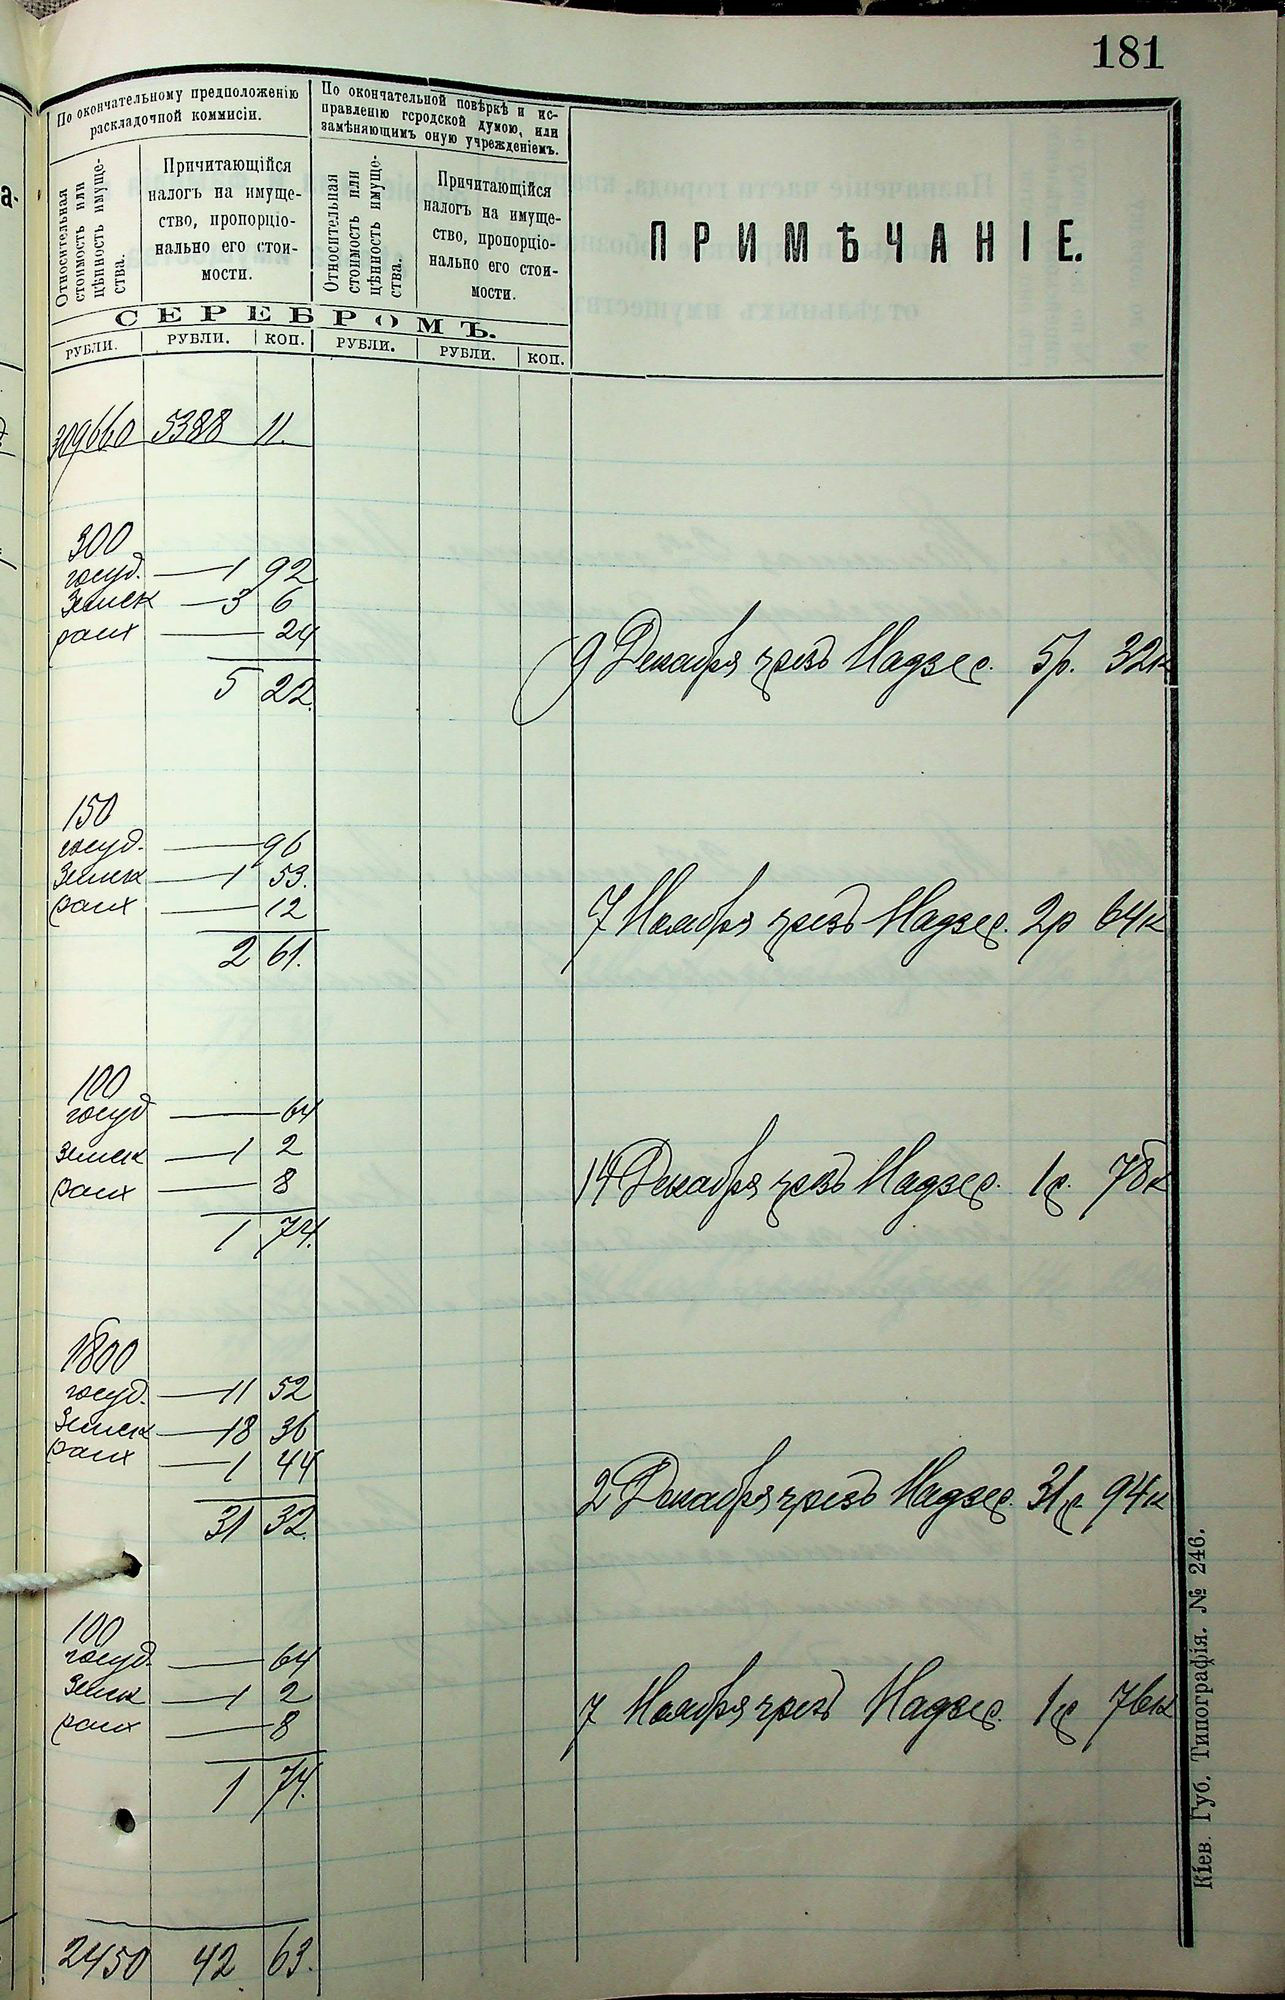 181
По окончательному предположенію
раскладочной коммисіи.
По окончательной повѣркѣ и ис-
правленію городской думою, или
замѣняющимъ оную учрежденіемъ.
Относительная
стоимость или
цѣнность имуще-
ства.
Причитающійся
налогъ на имуще-
ство, пропорціо-
нально его стои-
мости.
Относительная
стоимость или
цѣнность имуще-
ства.
Причитающійся
налогъ на имуще-
ство, пропорціо-
нально его стои-
мости.
ПРИМѢЧАНІЕ.
СЕРЕБРОМЪ.
РУБЛИ. РУБЛИ. КОП. РУБЛИ. РУБЛИ. КОП.
309660 5388 11.
300
госуд. — 1 92
Земск — 3 6
раих — 24
9 Декабря чрезъ Надзер. 5р. 32к
5 22.
150
госуд. — 96
Земск — 1 53.
раих — 12
7 Ноября чрезъ Надзер. 2р 64к
2 61.
100
госуд — 64
Земск — 1 2
раих — 8
14 Декабря чрезъ Надзер. 1р. 78к
1 74.
1800
госуд. — 11 52
Земск — 18 36
раих — 1 44
2 Декабря чрезъ Надзер. 31р 94к
31 32.
100
госуд. — 64
Земск — 1 2
раих — 8
7 Ноября чрезъ Надзер. 1р 76к
1 74.
2450 42 63.
Кіев. Губ. Типографія. № 246.